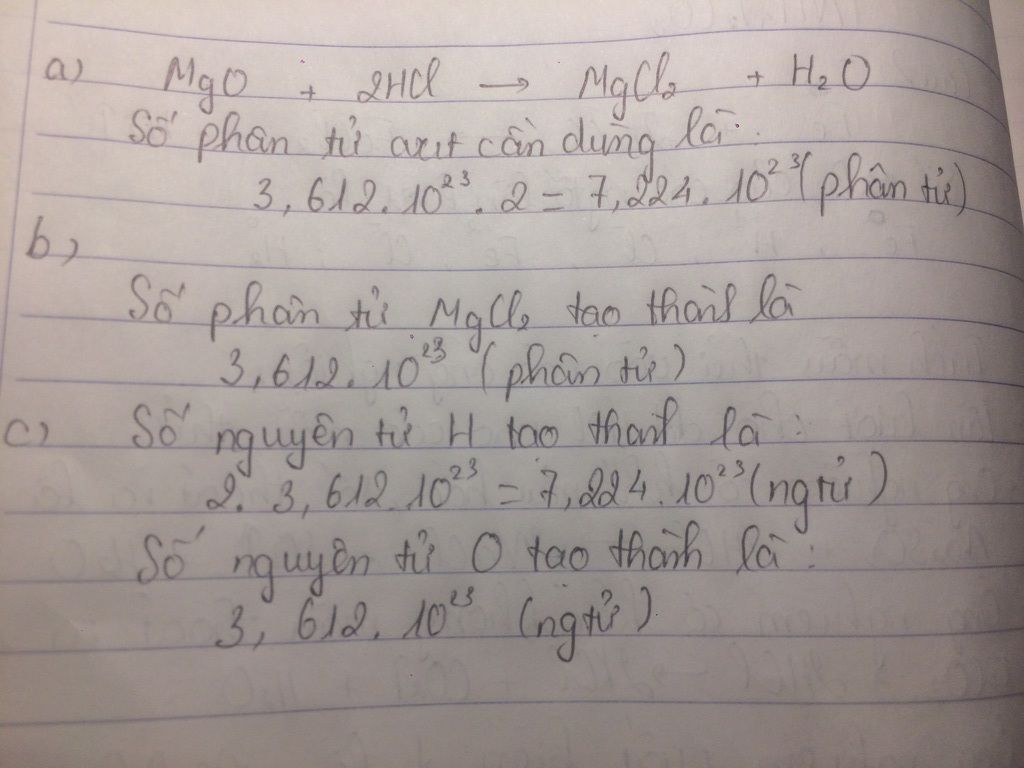 a) MgO + 2HCl → MgCl₂ + H₂O
Số phân tử axit cần dùng là:
3,612.10²³.2 = 7,224.10²³ (phân tử)
b)
Số phân tử MgCl₂ tạo thành là
3,612.10²³ (phân tử)
c) Số nguyên tử H tạo thành là:
2.3,612.10²³ = 7,224.10²³ (ngtử)
Số nguyên tử O tạo thành là:
3,612.10²³ (ngtử)